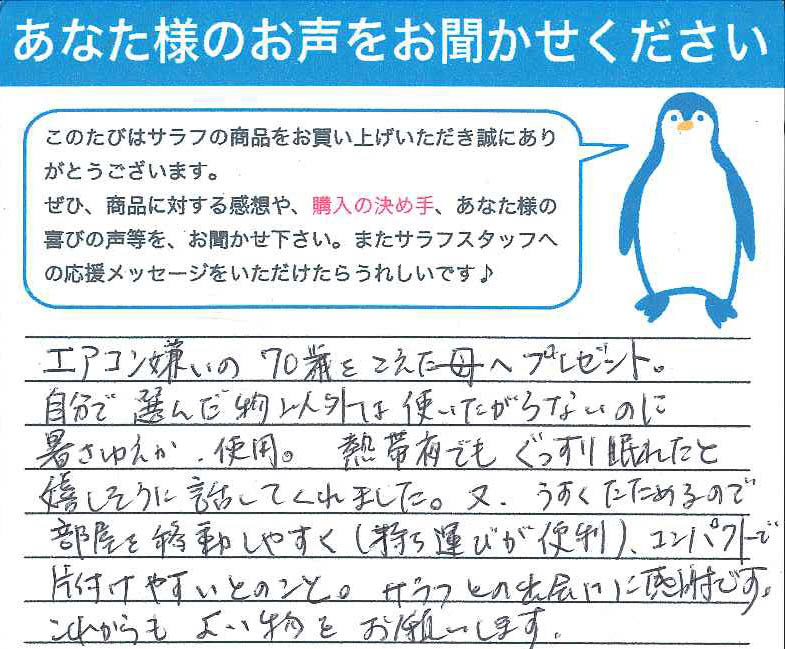 あなた様のお声をお聞かせください
このたびはサラフの商品をお買い上げいただき誠にあり
がとうございます。
ぜひ、商品に対する感想や、購入の決め手、あなた様の
喜びの声等を、お聞かせ下さい。またサラフスタッフへ
の応援メッセージをいただけたらうれしいです♪
エアコン嫌いの 70歳をこえた母へプレゼント。
自分で選んだ物以外は使いたがらないのに
暑さゆえか、使用。熱帯夜でもぐっすり眠れたと
嬉しそうに話してくれました。又、うすくたためるので
部屋を移動しやすく(持ち運びが便利)、コンパクトで
片付けやすいとのこと。サラフとの出会いに感謝です。
これからもよい物をお願いします。